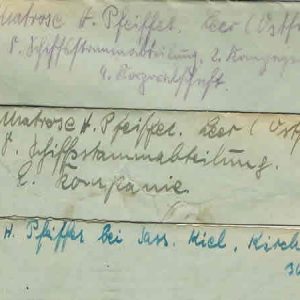 Matrose H. Pfeiffer. Leer (Ostf
8. Schiffsstammabteilung. 2. Kompagnie
4. Korporalschaft.
Matrose H. Pfeiffer. Leer (Ostf
8. Schiffsstammabteilung.
2. Kompanie
H. Pfeiffer bei Kiel. Kirch